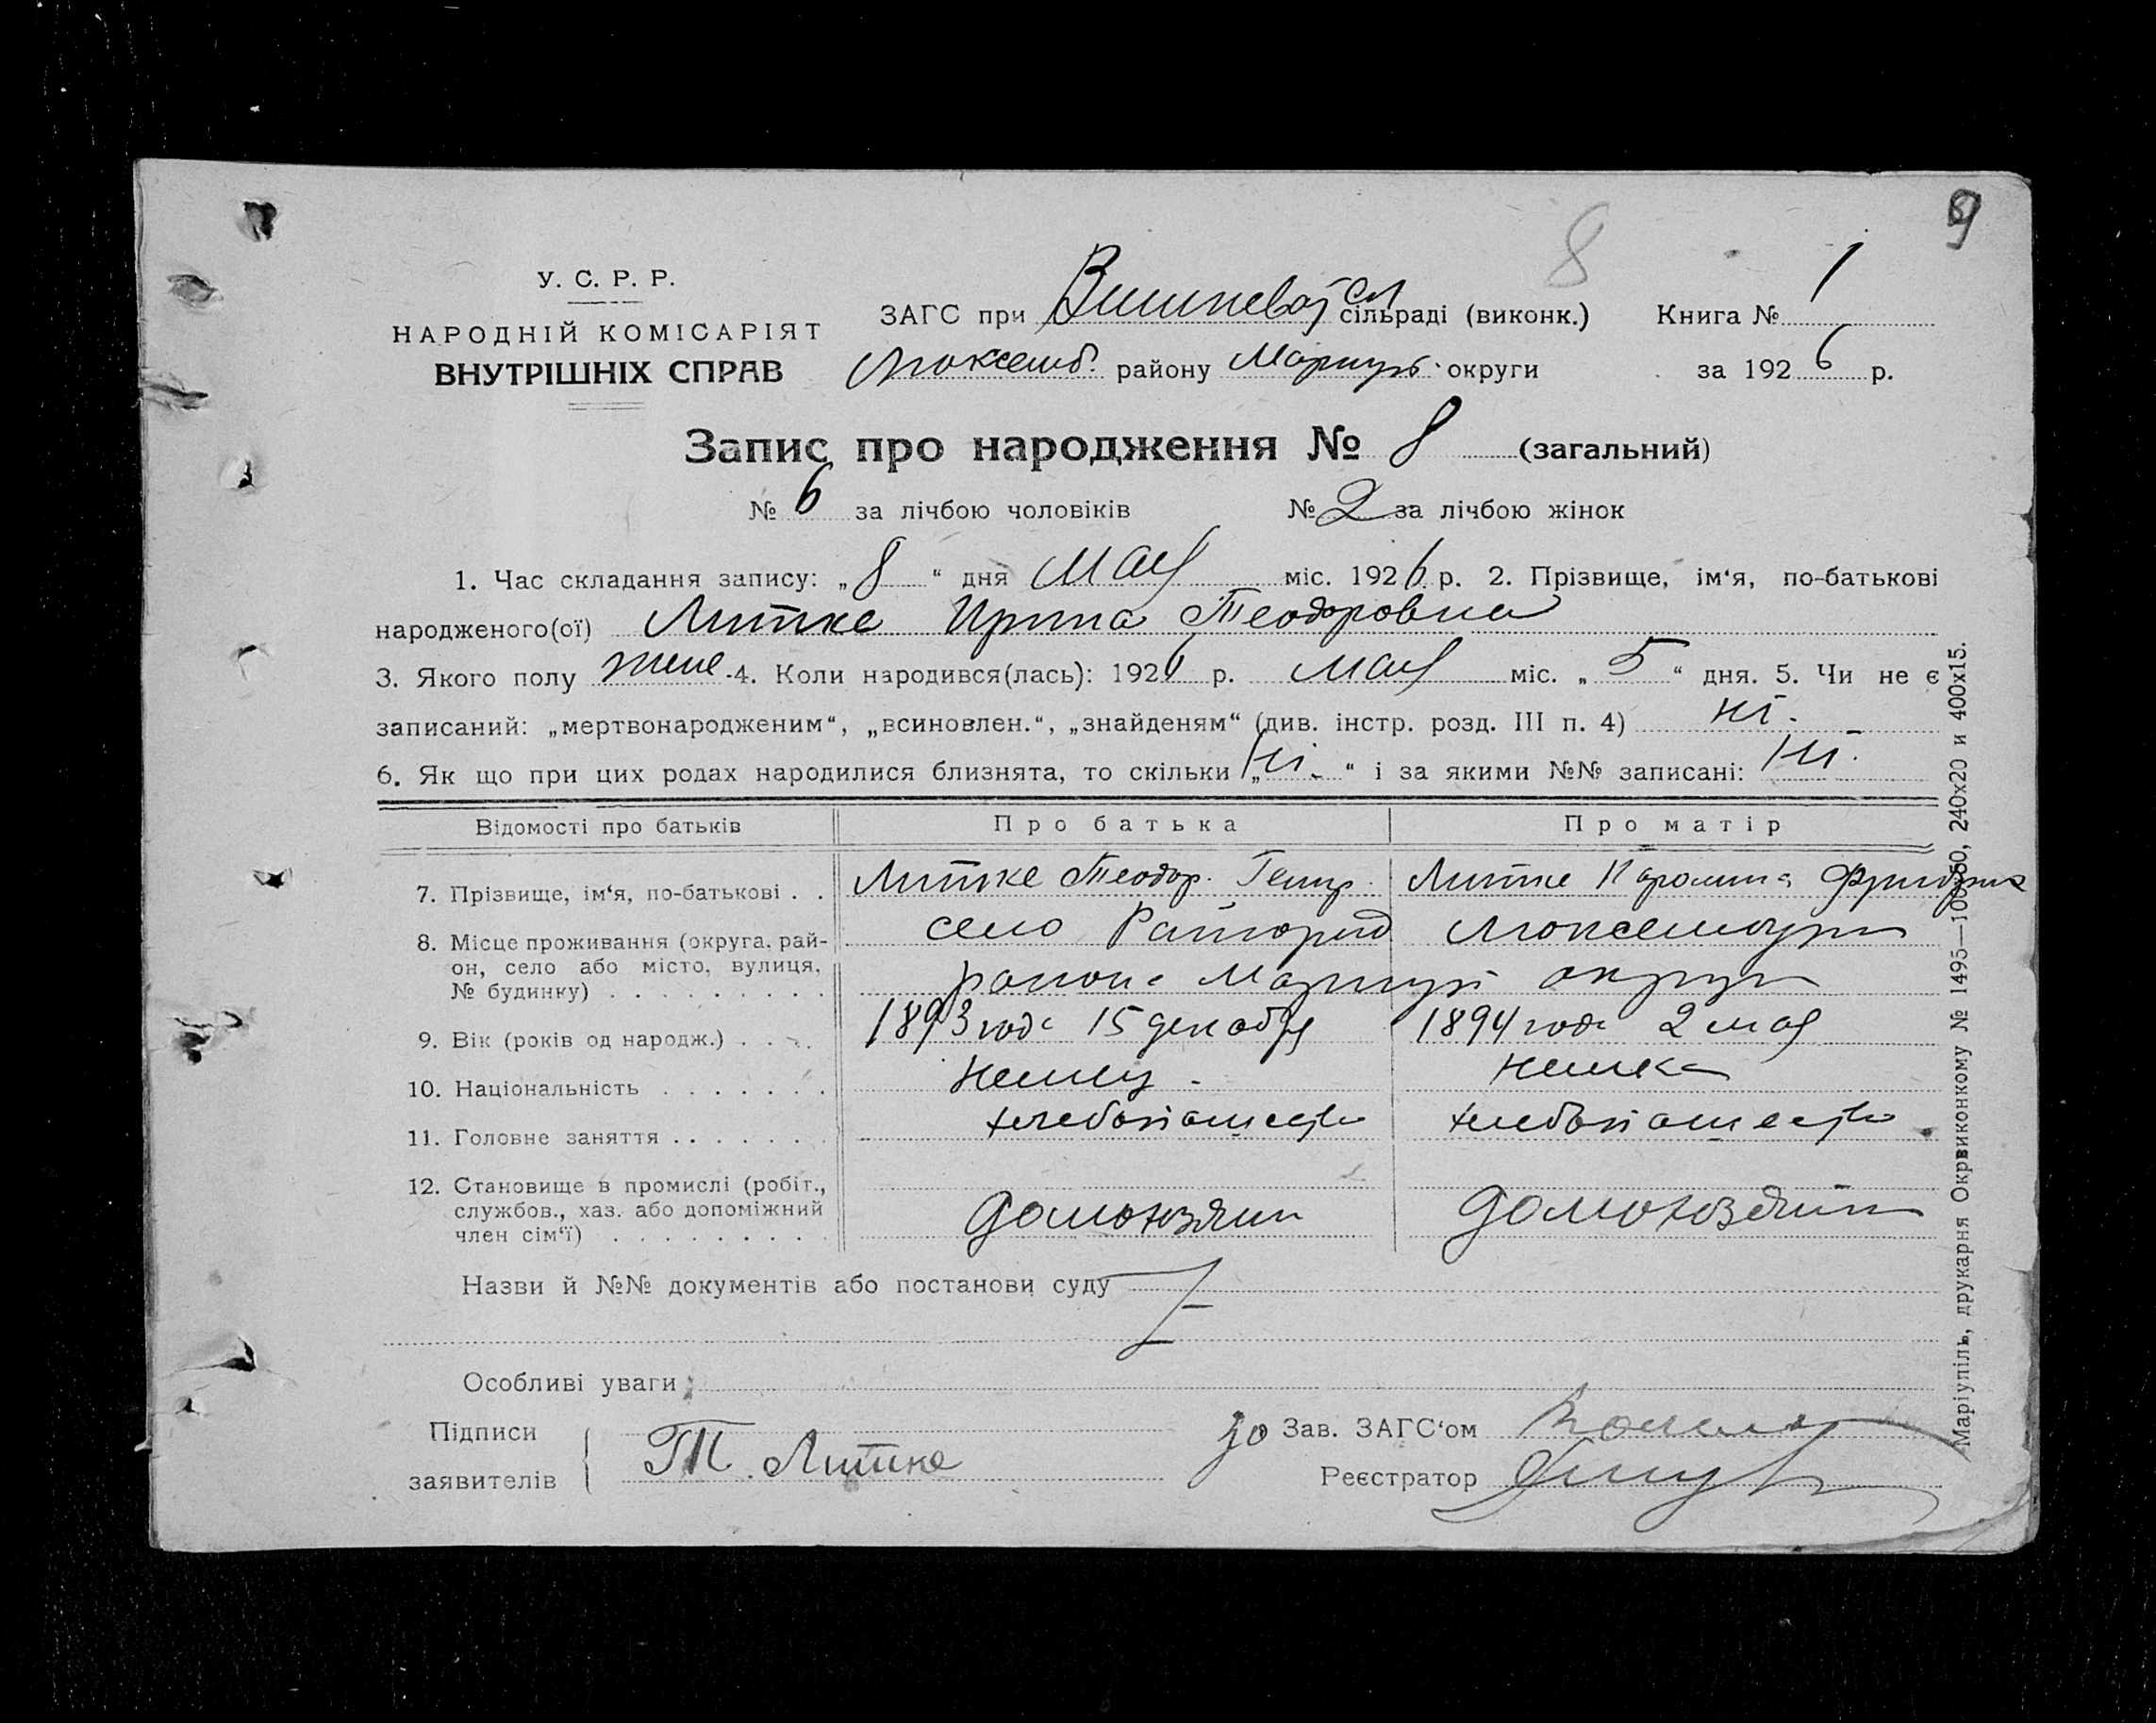 9
8
У. С. Р. Р.
НАРОДНІЙ КОМІСАРІЯТ
ВНУТРІШНІХ СПРАВ
ЗАГС при Вишневой с/л сільраді (виконк.) Книга № 1
Люксемб. району Мариуп. округи за 1926 р.
Запис про народження № 8 (загальний)
№ 6 за лічбою чоловіків № 2 за лічбою жінок
1. Час складання запису: „8“ дня Мая міс. 1926 р. 2. Прізвище, ім‘я, по-батькові
народженого(ої) Литке Ирина Теодоровна
3. Якого полу жене. 4. Коли народився(лась): 1926 р. мая міс. „5“ дня. 5. Чи не є
записаний: „мертвонародженим“, „всиновлен.“, „знайденям“ (див. інстр. розд. III п. 4) ні.
6. Як що при цих родах народилися близнята, то скільки „ні.“ і за якими №№ записані: ні.
Відомості про батьків Про батька Про матір
7. Прізвище, ім‘я, по-батькові . . Литке Теодор. Генр. Литке Каролина Фридрих
8. Місце проживання (округа, рай-
он, село або місто, вулиця,
№ будинку) . . . . . . . . .
село Люксембург
района Мариуп округи
9. Вік (років од народж.) . . . . 1893 года 15 декабря 1894 года 2 мая
10. Національність . . . . . . . немец. немка
11. Головне заняття . . . . . . . хлебопашество хлебопашество
12. Становище в промислі (робіт.,
службов., хаз. або допоміжний
член сім‘ї) . . . . . . . . .
домохозяин домохозяйка
Назви й №№ документів або постанови суду
Особливі уваги:
Підписи
заявителів
Т. Литке
Зав. ЗАГС‘ом
Реєстратор
Маріупіль, друкарня Окрвиконкому № 1495—100х60, 240х20 и 400х15.